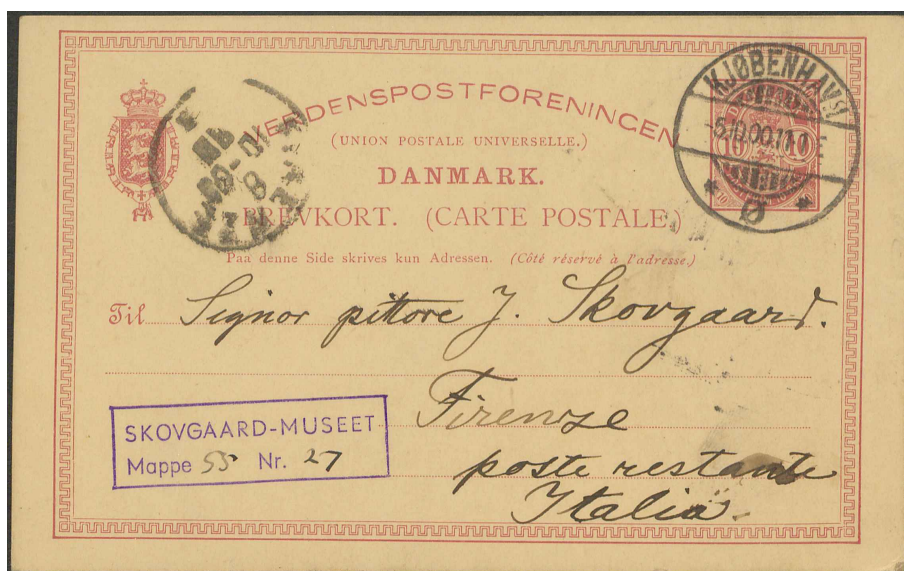 VERDENSPOSTFORENINGEN
(UNION POSTALE UNIVERSELLE.)
DANMARK.
BREVKORT. (CARTE POSTALE.)
Paa denne Side skrives kun Adressen. (Côté réservé à l'adresse.)
KJØBENHAVN
Ø
10
Til Signor pittore J. Skovgaard.
Firenze
poste restante
Italia.
SKOVGAARD-MUSEET
Mappe 55 Nr. 27